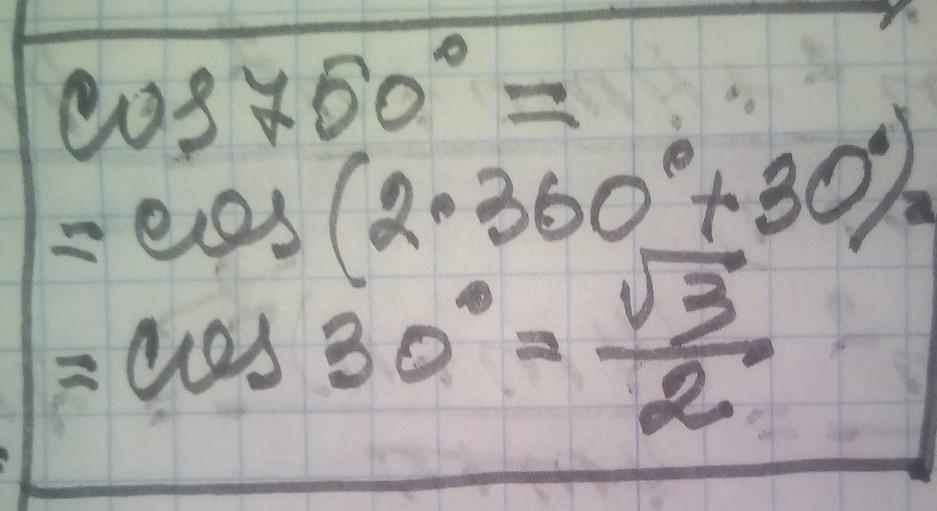 cos 750° =
= cos (2·360° + 30°) =
= cos 30° = √3/2